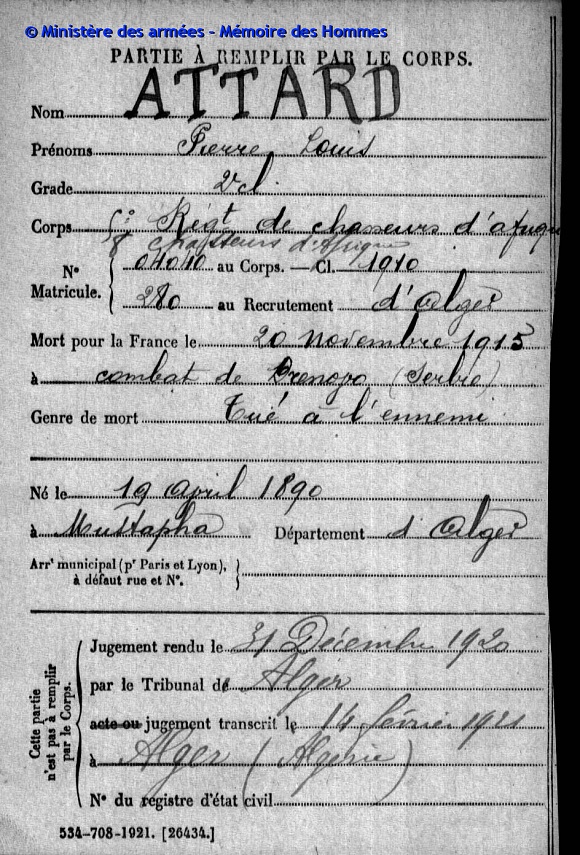 © Ministère des armées - Mémoire des Hommes
PARTIE À REMPLIR PAR LE CORPS.
Nom ATTARD
Prénoms Pierre Louis
Grade 2e cl.
Corps Régt de chasseurs d'afrique
chasseurs d'Afrique
N° Matricule. { 04010 au Corps. — Cl. 1910
280 au Recrutement d'Alger
Mort pour la France le 20 novembre 1915
à combat de (Serbie)
Genre de mort Tué à l'ennemi
Né le 19 april 1890
à Mustapha Département d'Alger
Arrt municipal (pr Paris et Lyon),
à défaut rue et N°. }
Cette partie n'est pas à remplir par le Corps.
Jugement rendu le 31 Décembre 1920
par le Tribunal de Alger
acte ou jugement transcrit le 14 février 1921
à Alger (Algérie)
N° du registre d'état civil
534-708-1921. [26434.]